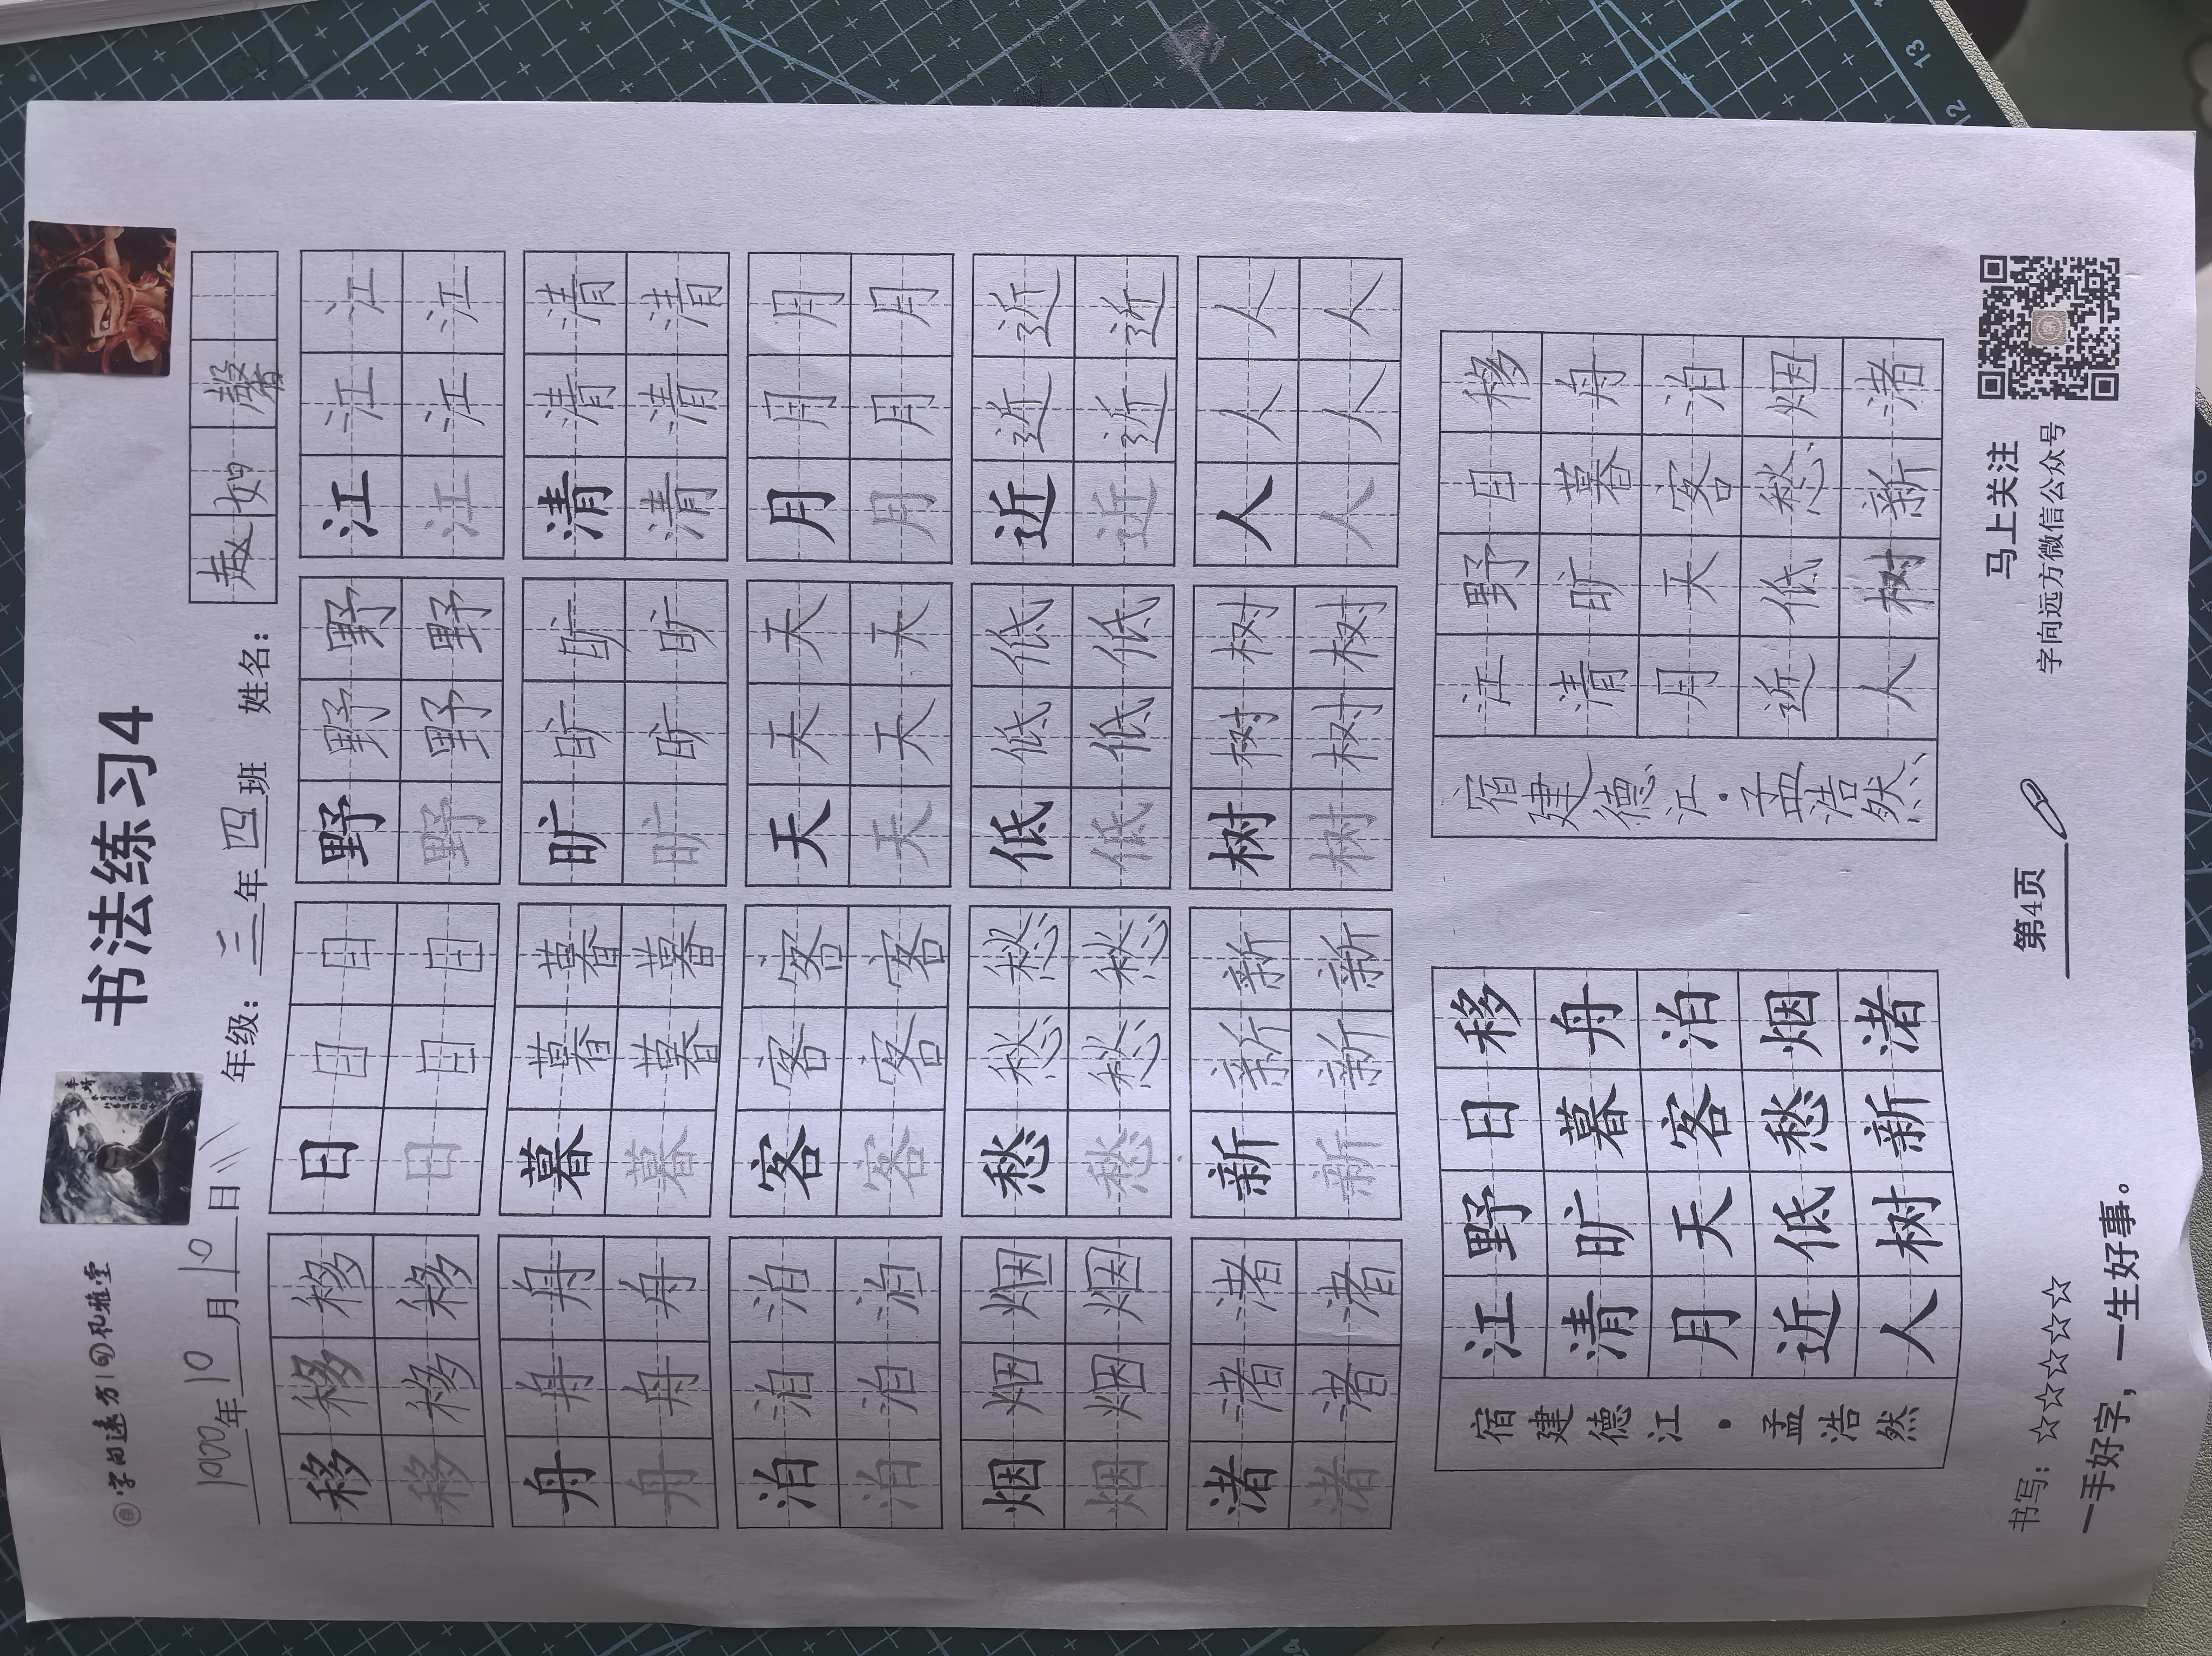 字向远方 礼雅堂
书法练习4
1000年10月10日 年级：三年四班 姓名：赵如馨
移移移日日日野野野江江江
移移移日日日野野野江江江
舟舟舟暮暮暮旷旷旷清清清
舟舟舟暮暮暮旷旷旷清清清
泊泊泊客客客天天天月月月
泊泊泊客客客天天天月月月
烟烟烟愁愁愁低低低近近近
烟烟烟愁愁愁低低低近近近
渚渚渚新新新树树树人人人
渚渚渚新新新树树树人人人
宿建德江·孟浩然
江野日移
清旷暮舟
月天客泊
近低愁烟
人树新渚
宿建德江·孟浩然
江野日移
清旷暮舟
月天客泊
近低愁烟
人树新渚
书写：☆☆☆☆☆
一手好字，一生好事。
第4页
马上关注
字向远方微信公众号